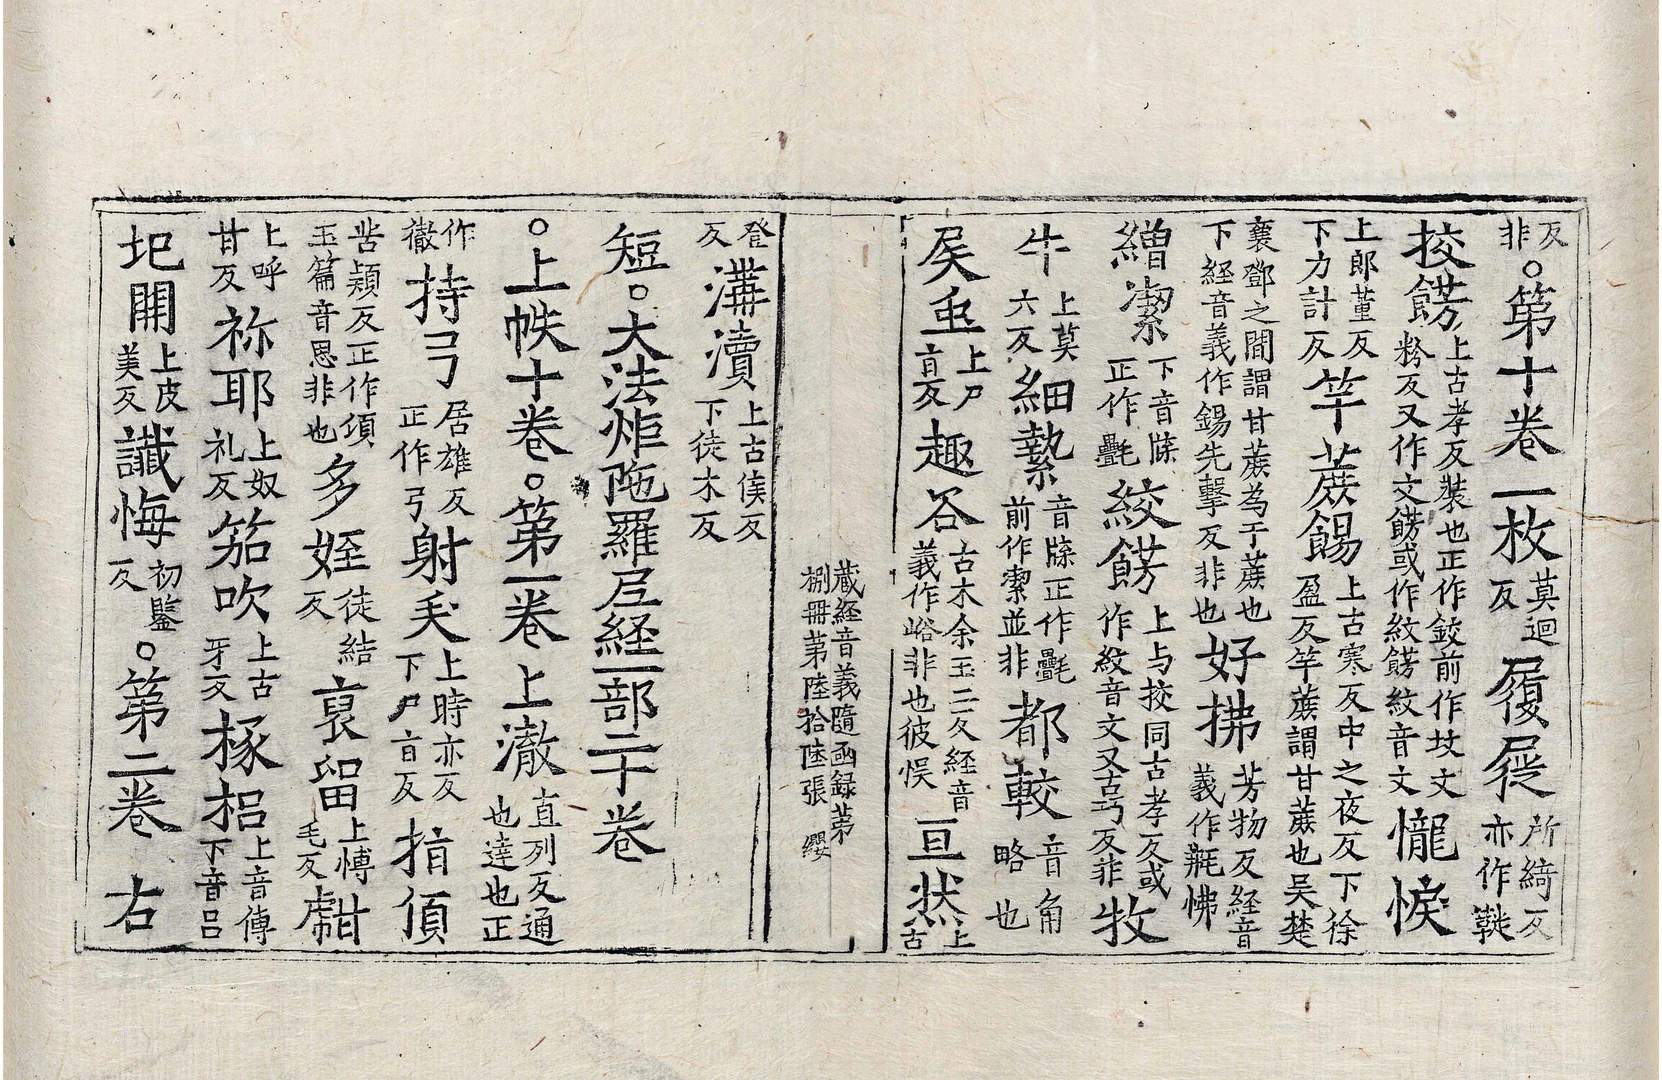 反非○第十卷 一枚莫迴反 履屣所綺反亦作
挍餝上古孝反裝也正作鉸前作妏文粉反又作文餝或作紋餝紋音文 㦨悷
上郎董反下力計反 竿蔗餳上古寒反中之夜反下徐盈反竿蔗謂甘蔗也吴楚
襄鄧之間謂甘蔗為于蔗也下経音義作錫先擊反非也 好拂芳物反経音義作毦怫
繒潔下音牒正作㲲 絞餝上与挍同古孝反或作紋音文又古巧反非 牧
牛上莫六反 細縶音牒正作㲲前作潔並非 都較音角略也
屎重上尸旨反 趣谷古木余玉二反経音義作峪非也彼悮 亘然上古
蔵経音義隨函録苐捌冊苐陸拾陸張 纓
登反 溝瀆上古侯反下徒木反
短○大法炬陁羅尼経一部二十卷
○上帙十卷○第一卷 上澈直列反通也達也正
作徹 持弓居雄反正作弓 射矢上時亦反下尸旨反 指傾
苦頴反正作頃玉篇音思非也 多姪徒結反 裒留上愽毛反 甝
上呼甘反 祢耶上奴礼反 笳吹上古牙反 椽梠上音傳下音吕
圯開上皮美反 懺悔初鑒反○第二卷 右